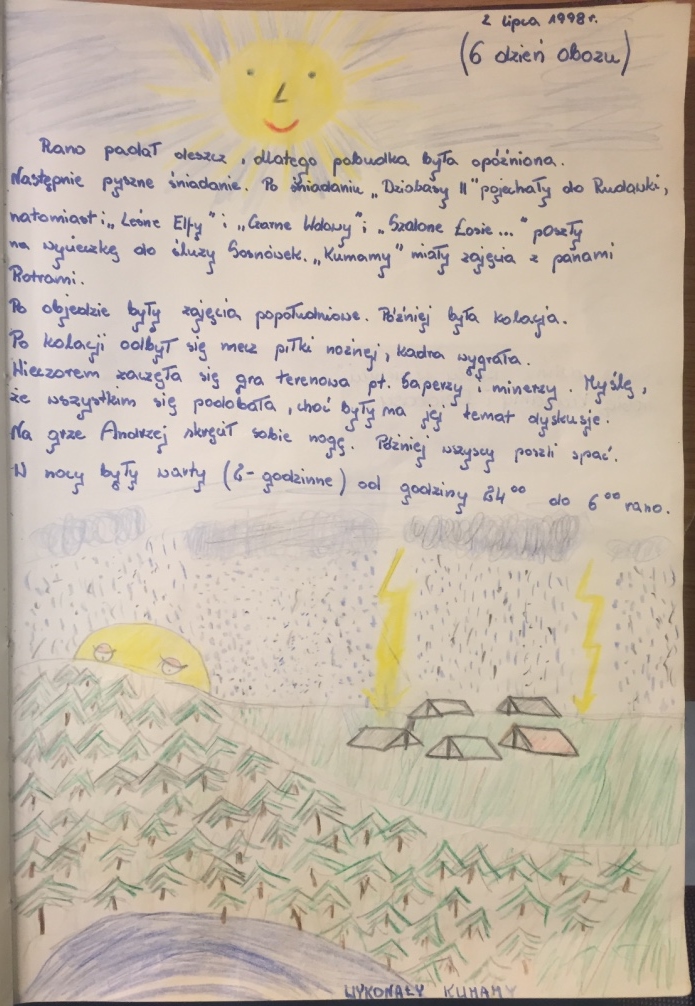 2 lipca 1998 r.
(6 dzień obozu)
Rano padał deszcz, dlatego pobudka była opóźniona.
Następnie pyszne śniadanie. Po śniadaniu „Dziobasy II" pojechały do Rudawki,
natomiast i „Leśne Elfy" i „Czarne Wdowy" i „Szalone Łosie..." poszły
na wycieczkę do śluzy Sosnówek. „Kumamy" miały zajęcia z panami
Piotrami.
Po objedzie były zajęcia popołudniowe. Później była kolacja.
Po kolacji odbył się mecz piłki nożnej, kadra wygrała.
Wieczorem zaczęła się gra terenowa pt. Saperzy i minerzy. Myślę,
że wszystkim się podobała, choć były na jej temat dyskusje.
Na grze Andrzej skręcił sobie nogę. Później wszyscy poszli spać.
W nocy były warty (2-godzinne) od godziny 24⁰⁰ do 6⁰⁰ rano.
WYKONAŁY KUMAMY